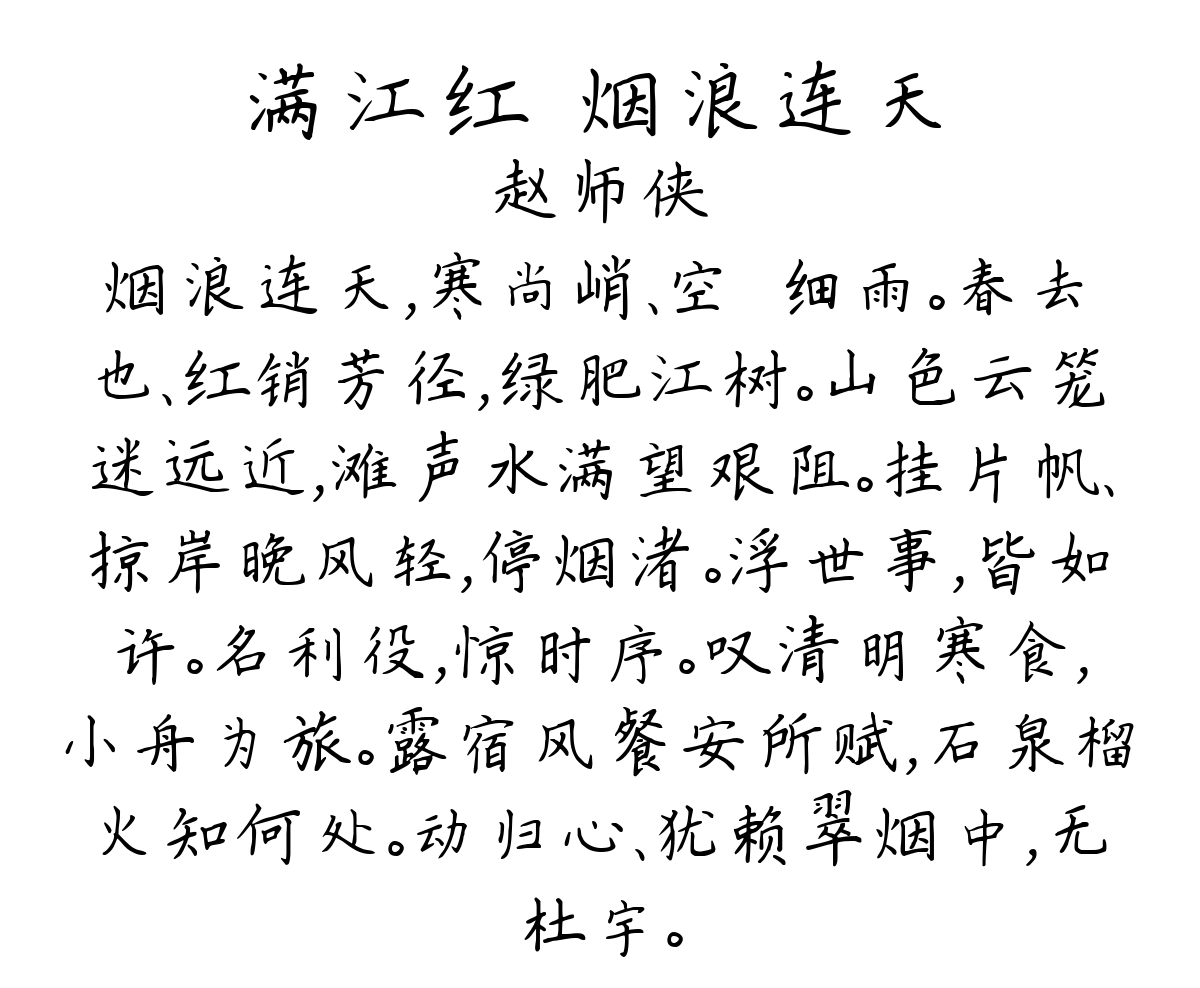 满江红 烟浪连天
赵师侠
烟浪连天,寒尚峭、空 细雨。春去
也、红销芳径,绿肥江树。山色云笼
迷远近,滩声水满望艰阻。挂片帆、
掠岸晚风轻,停烟渚。浮世事,皆如
许。名利役,惊时序。叹清明寒食,
小舟为旅。露宿风餐安所赋,石泉榴
火知何处。动归心、犹赖翠烟中,无
杜宇。